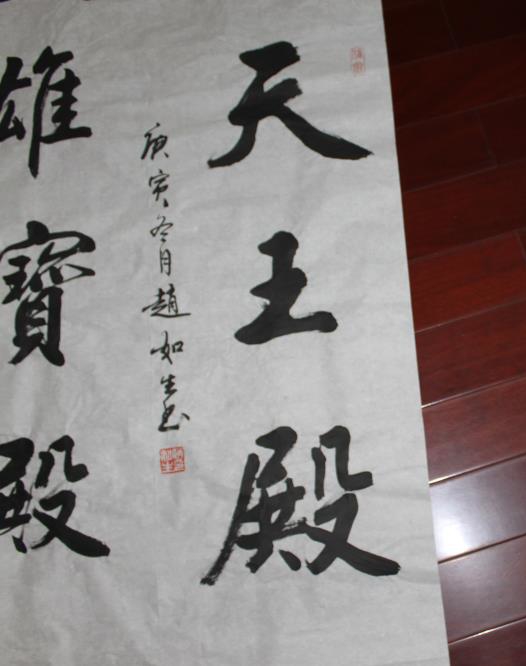 天王殿
庚寅冬月趙如生书
雄寶殿